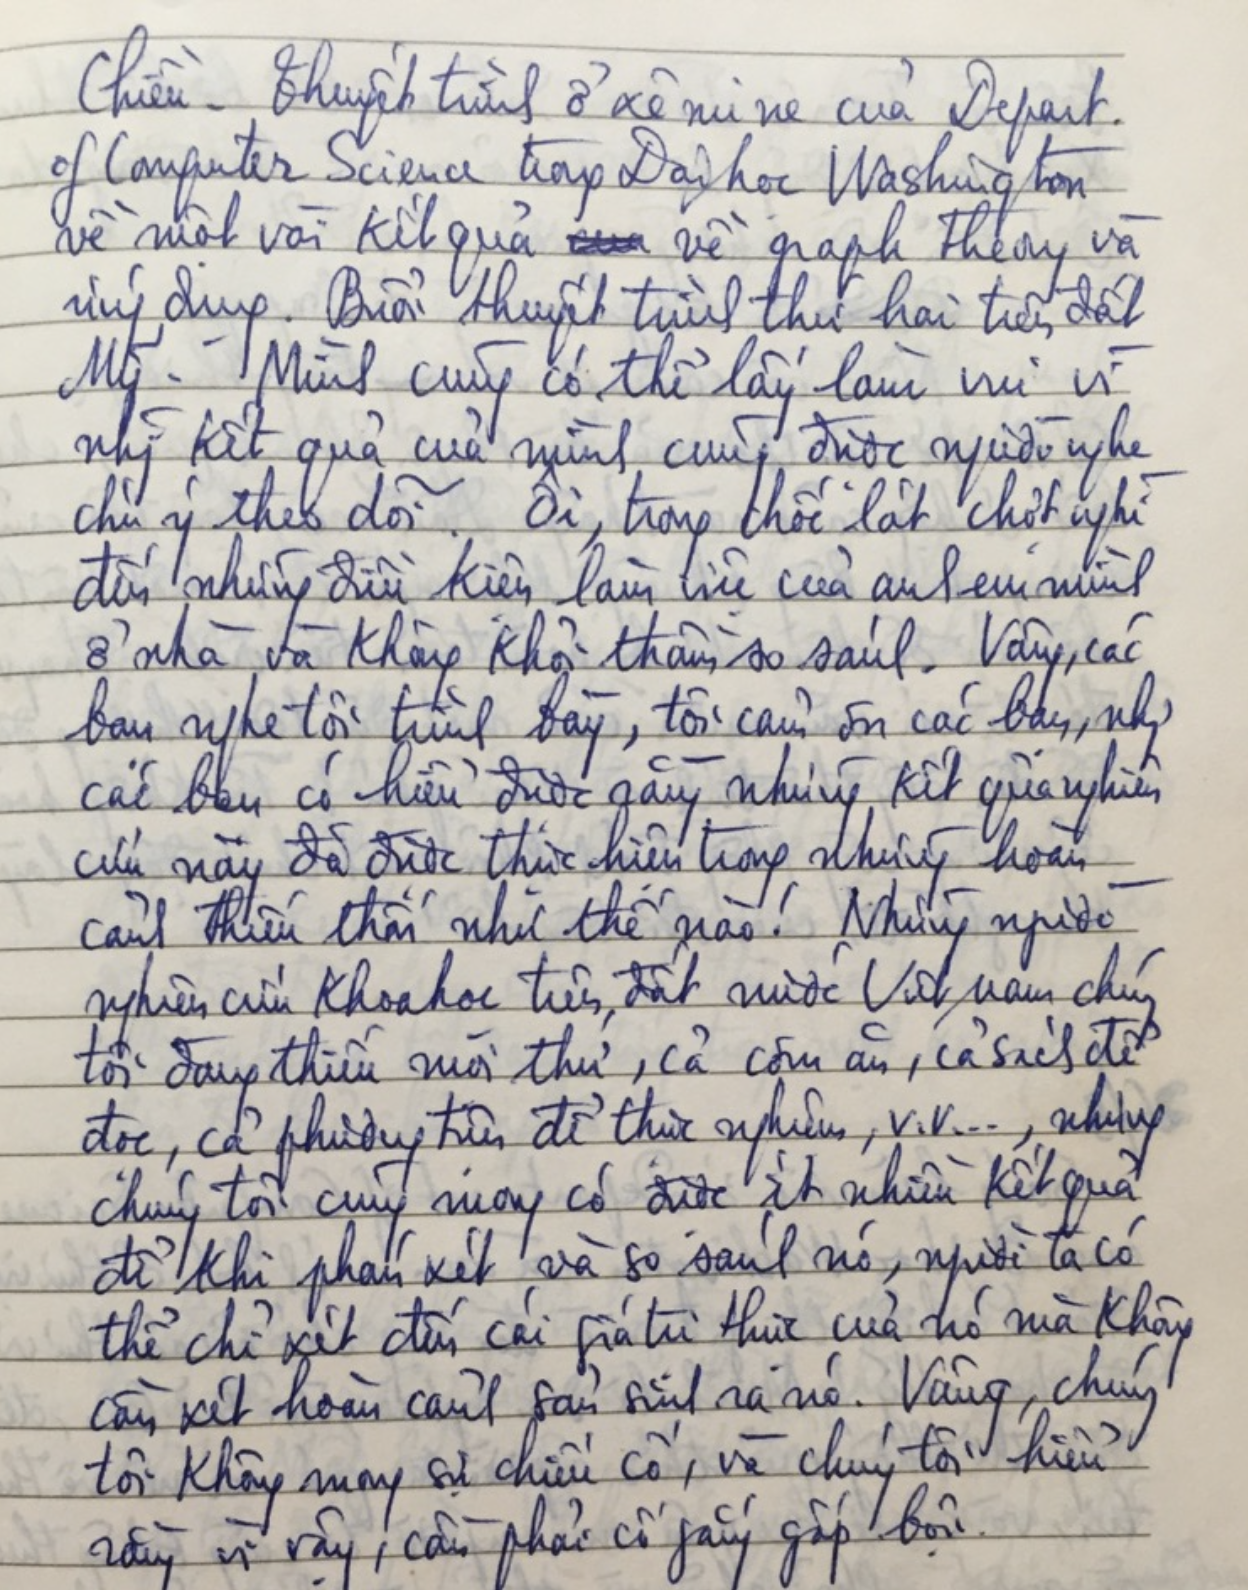 Chiều - Thuyết trình ở xêmine của Depart.
of Computer Science trong Đại học Washington
về một vài kết quả về graph theory và
ứng dụng. Buổi thuyết trình thứ hai trên đất
Mỹ. - Mình cũng có thể lấy làm vui vì
nhg kết quả của mình cũng được người nghe
chú ý theo dõi. Ôi, trong chốc lát chợt nghĩ
đến những điều kiện làm việc của anh em mình
ở nhà và không khỏi thầm so sánh. Vâng, các
bạn nghe tôi trình bày, tôi cảm ơn các bạn, nhg
các bạn có hiểu được rằng những kết quả nghiên
cứu này đã được thực hiện trong những hoàn
cảnh thiếu thốn như thế nào! Những người
nghiên cứu khoa học trên đất nước Việt nam chúng
tôi đang thiếu mọi thứ, cả cơm ăn, cả sách để
đọc, cả phương tiện để thực nghiệm, v.v..., nhưng
chúng tôi cũng mong có được ít nhiều kết quả
để khi phán xét và so sánh nó, người ta có
thể chỉ xét đến cái giá trị thực của nó mà không
cần xét hoàn cảnh sản sinh ra nó. Vâng, chúng
tôi không mong sự chiếu cố, và chúng tôi hiểu
rằng vì vậy, cần phải cố gắng gấp bội.